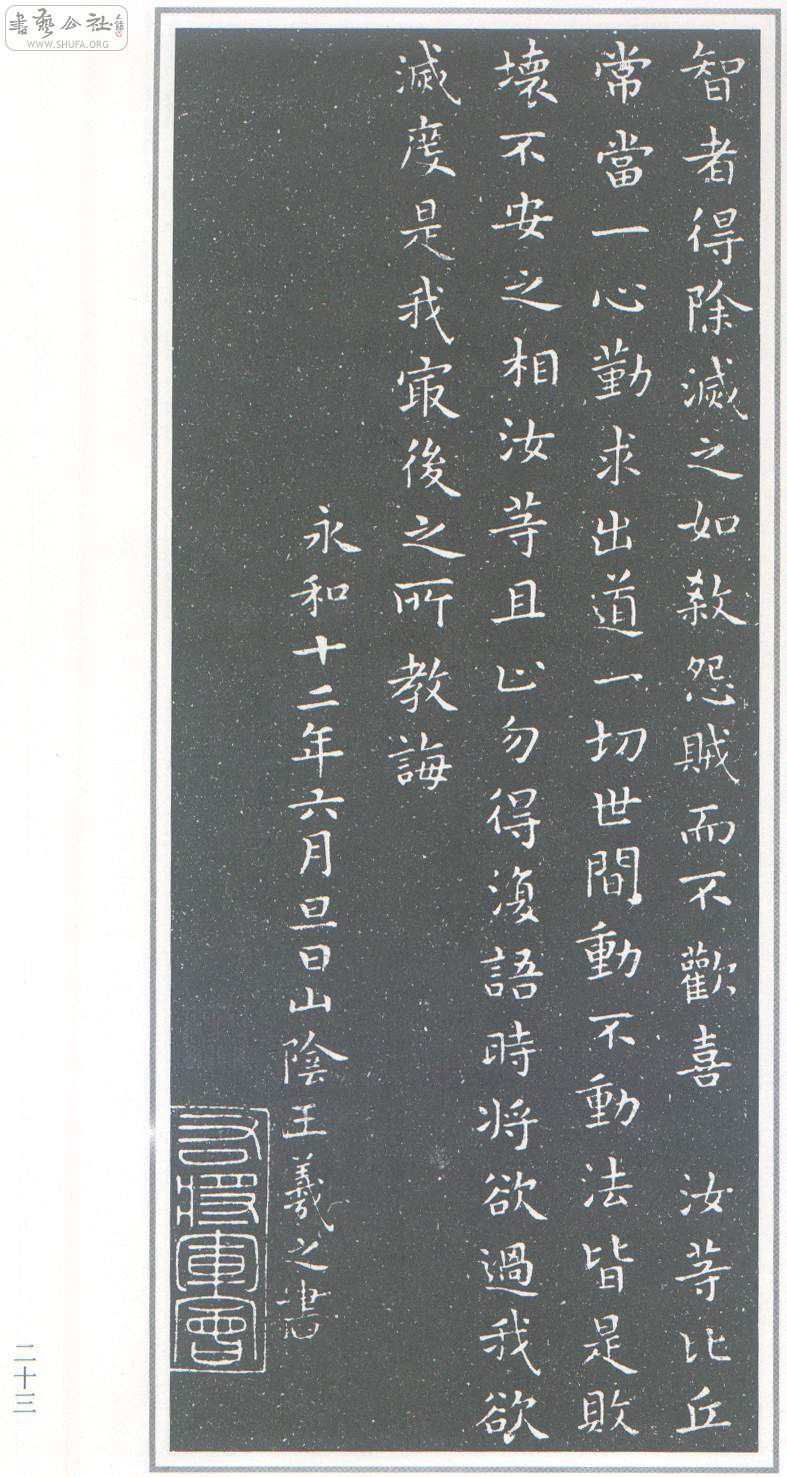 書藝公社
WWW.SHUFA.ORG
智者得除滅之如煞怨賊而不歡喜 汝等比丘
常當一心勤求出道一切世間動不動法皆是敗
壞不安之相汝等且止勿得復語時将欲過我欲
滅度是我最後之所教誨
永和十二年六月旦日山陰王羲之書
右将軍會
二十三